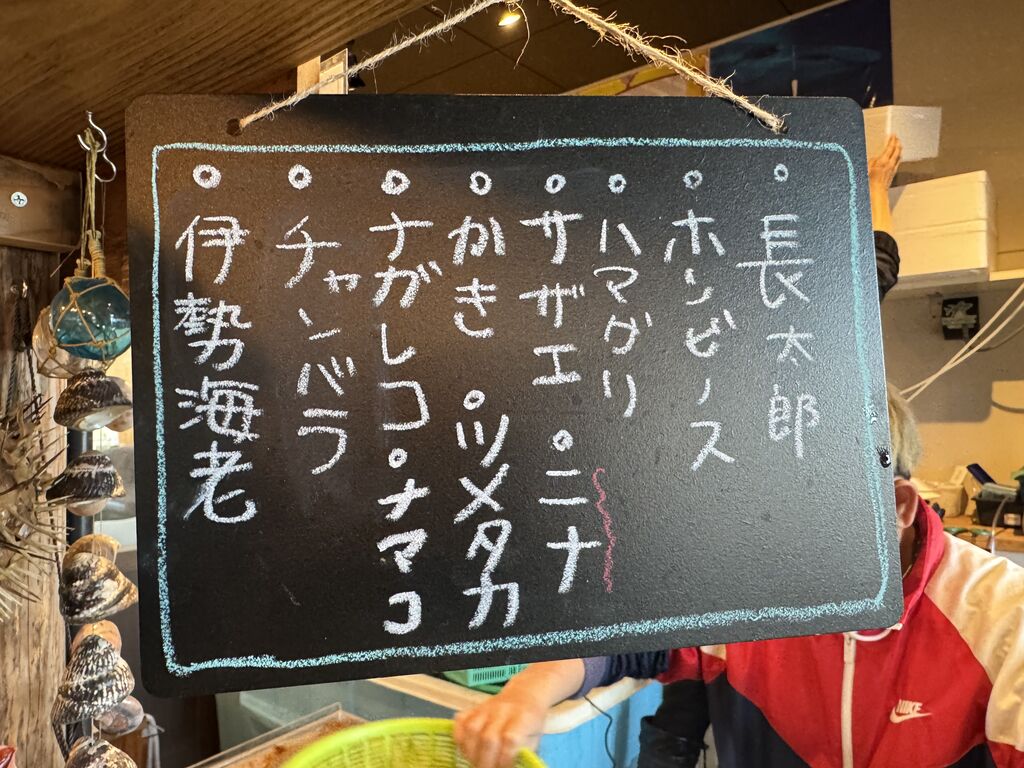 ○長太郎
○ホンビノス
○ハマグリ
○サザエ ○ニナ
○かき ○ツメタカ
○ナガレコ ○ナマコ
○チャンバラ
○伊勢海老
NIKE